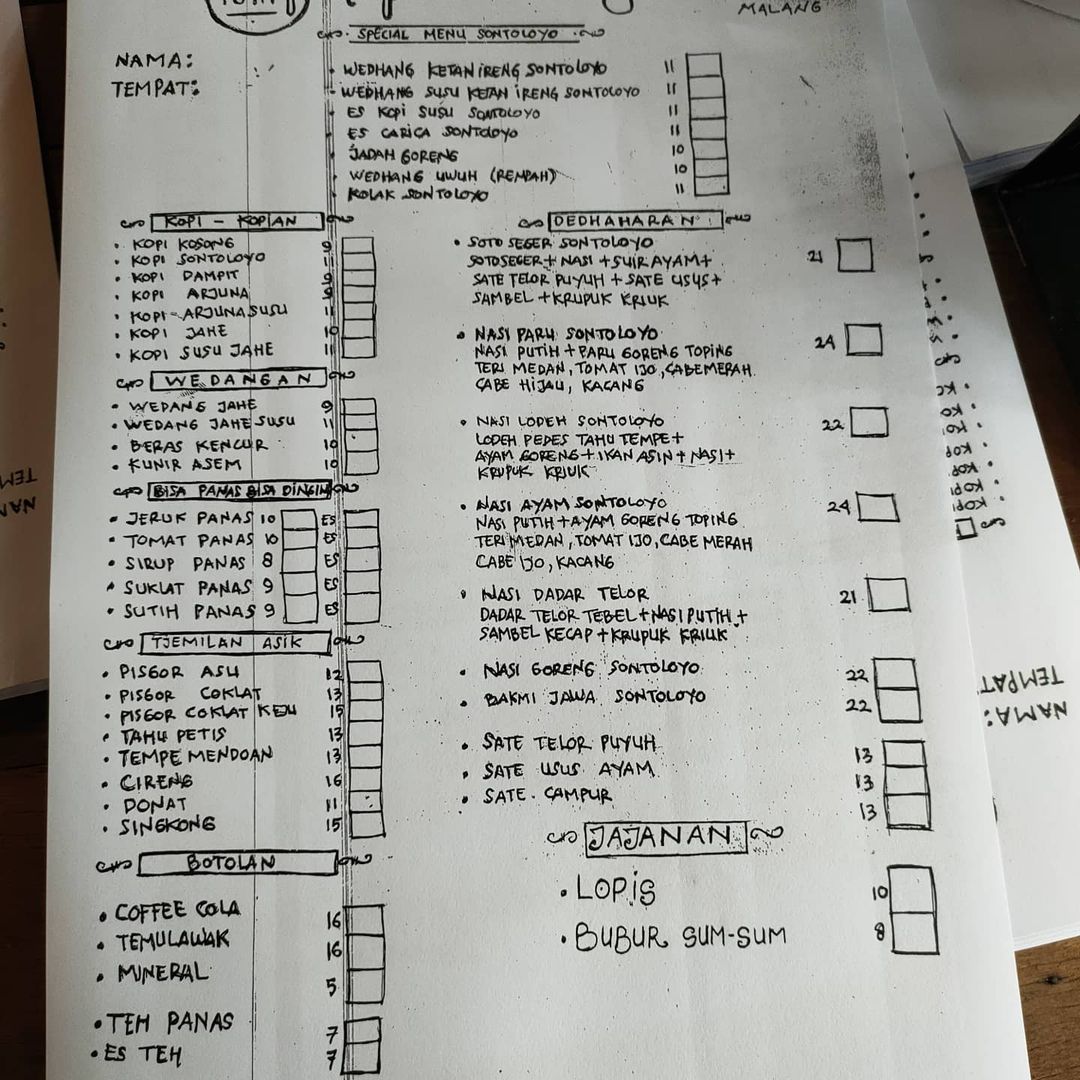 MALANG
SPECIAL MENU SONTOLOYO
NAMA:
TEMPAT:
WEDHANG KETAN IRENG SONTOLOYO 11
WEDHANG SUSU KETAN IRENG SONTOLOYO 11
ES KOPI SUSU SONTOLOYO 11
ES CARICA SONTOLOYO 11
JADAH GORENG 10
WEDHANG UWUH (REMPAH) 10
KOLAK SONTOLOYO 11
KOPI - KOPIAN
• KOPI KOSONG 9
• KOPI SONTOLOYO 11
• KOPI DAMPIT 9
• KOPI ARJUNA 9
• KOPI - ARJUNA SUSU 11
• KOPI JAHE 10
• KOPI SUSU JAHE 11
WEDANGAN
• WEDANG JAHE 9
• WEDANG JAHE SUSU 11
• BERAS KENCUR 10
• KUNIR ASEM 10
BISA PANAS BISA DINGIN
• JERUK PANAS 10 ES
• TOMAT PANAS 10 ES
• SIRUP PANAS 8 ES
• SUKLAT PANAS 9 ES
• SUTIH PANAS 9 ES
TJEMILAN ASIK
• PISGOR ASU 12
• PISGOR COKLAT 13
• PISGOR COKLAT KEJU 15
• TAHU PETIS 13
• TEMPE MENDOAN 13
• CIRENG 16
• DONAT 11
• SINGKONG 15
BOTOLAN
• COFFEE COLA 16
• TEMULAWAK 16
• MINERAL 5
• TEH PANAS 7
• ES TEH 7
DEDHAHARAN
• SOTO SEGER SONTOLOYO 21
SOTO SEGER + NASI + SUIR AYAM +
SATE TELOR PUYUH + SATE USUS +
SAMBEL + KRUPUK KRIUK
• NASI PARU SONTOLOYO 24
NASI PUTIH + PARU GORENG TOPING
TERI MEDAN, TOMAT IJO, CABE MERAH
CABE HIJAU, KACANG
• NASI LODEH SONTOLOYO 22
LODEH PEDES TAHU TEMPE +
AYAM GORENG + IKAN ASIN + NASI +
KRUPUK KRIUK
• NASI AYAM SONTOLOYO 24
NASI PUTIH + AYAM GORENG TOPING
TERI MEDAN, TOMAT IJO, CABE MERAH
CABE IJO, KACANG
• NASI DADAR TELOR 21
DADAR TELOR TEBEL + NASI PUTIH +
SAMBEL KECAP + KRUPUK KRIUK
• NASI GORENG SONTOLOYO 22
• BAKMI JAWA SONTOLOYO 22
• SATE TELOR PUYUH 13
• SATE USUS AYAM 13
• SATE CAMPUR 13
JAJANAN
• LOPIS 10
• BUBUR SUM-SUM 8
NAMA:
TEMPAT